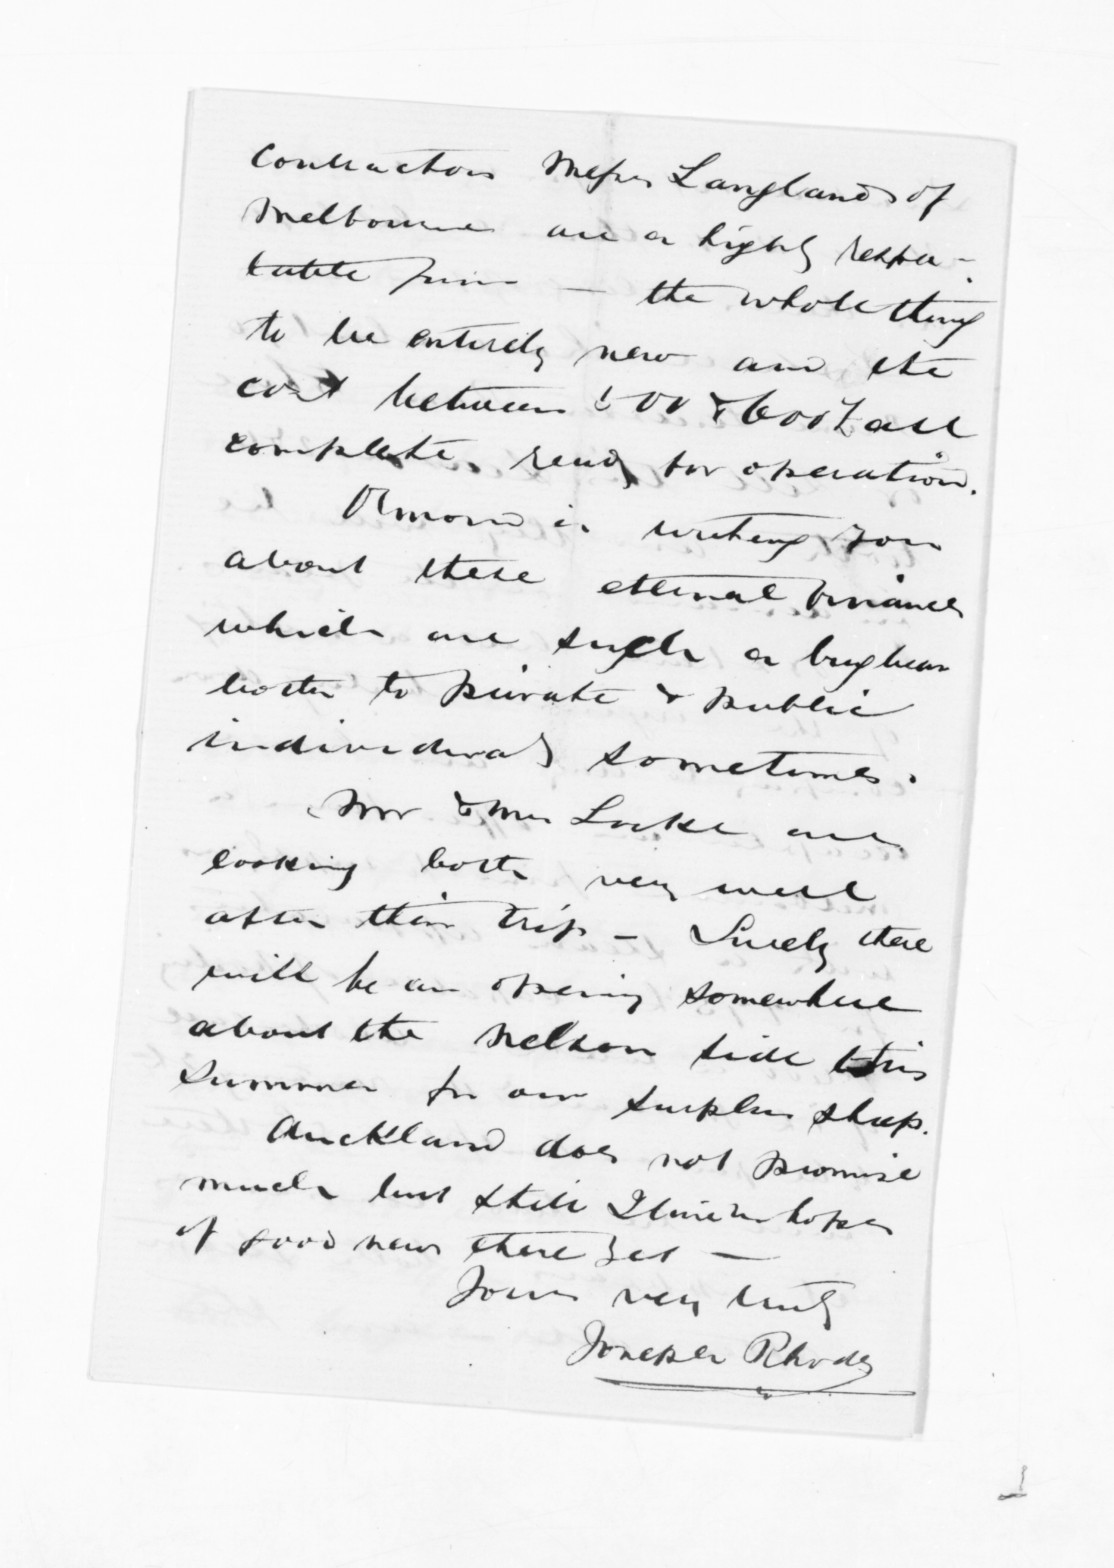 contractors Messrs Langlands of
Melbourne are a highly respec-
table firm — the whole thing
to be entirely new and the
cost between 500 & 600£ all
complete ready for operation.
Ormond is writing you
about these eternal finances
which are such a bugbear
both to private & public
individuals sometimes.
Mr & Mrs Locke are
looking both very well
after their trip — Surely there
will be an opening somewhere
about the Nelson side this
summer for our surplus sheep.
Auckland does not promise
much but still I live in hopes
of good news there yet —
Yours very truly
Joseph Rhodes